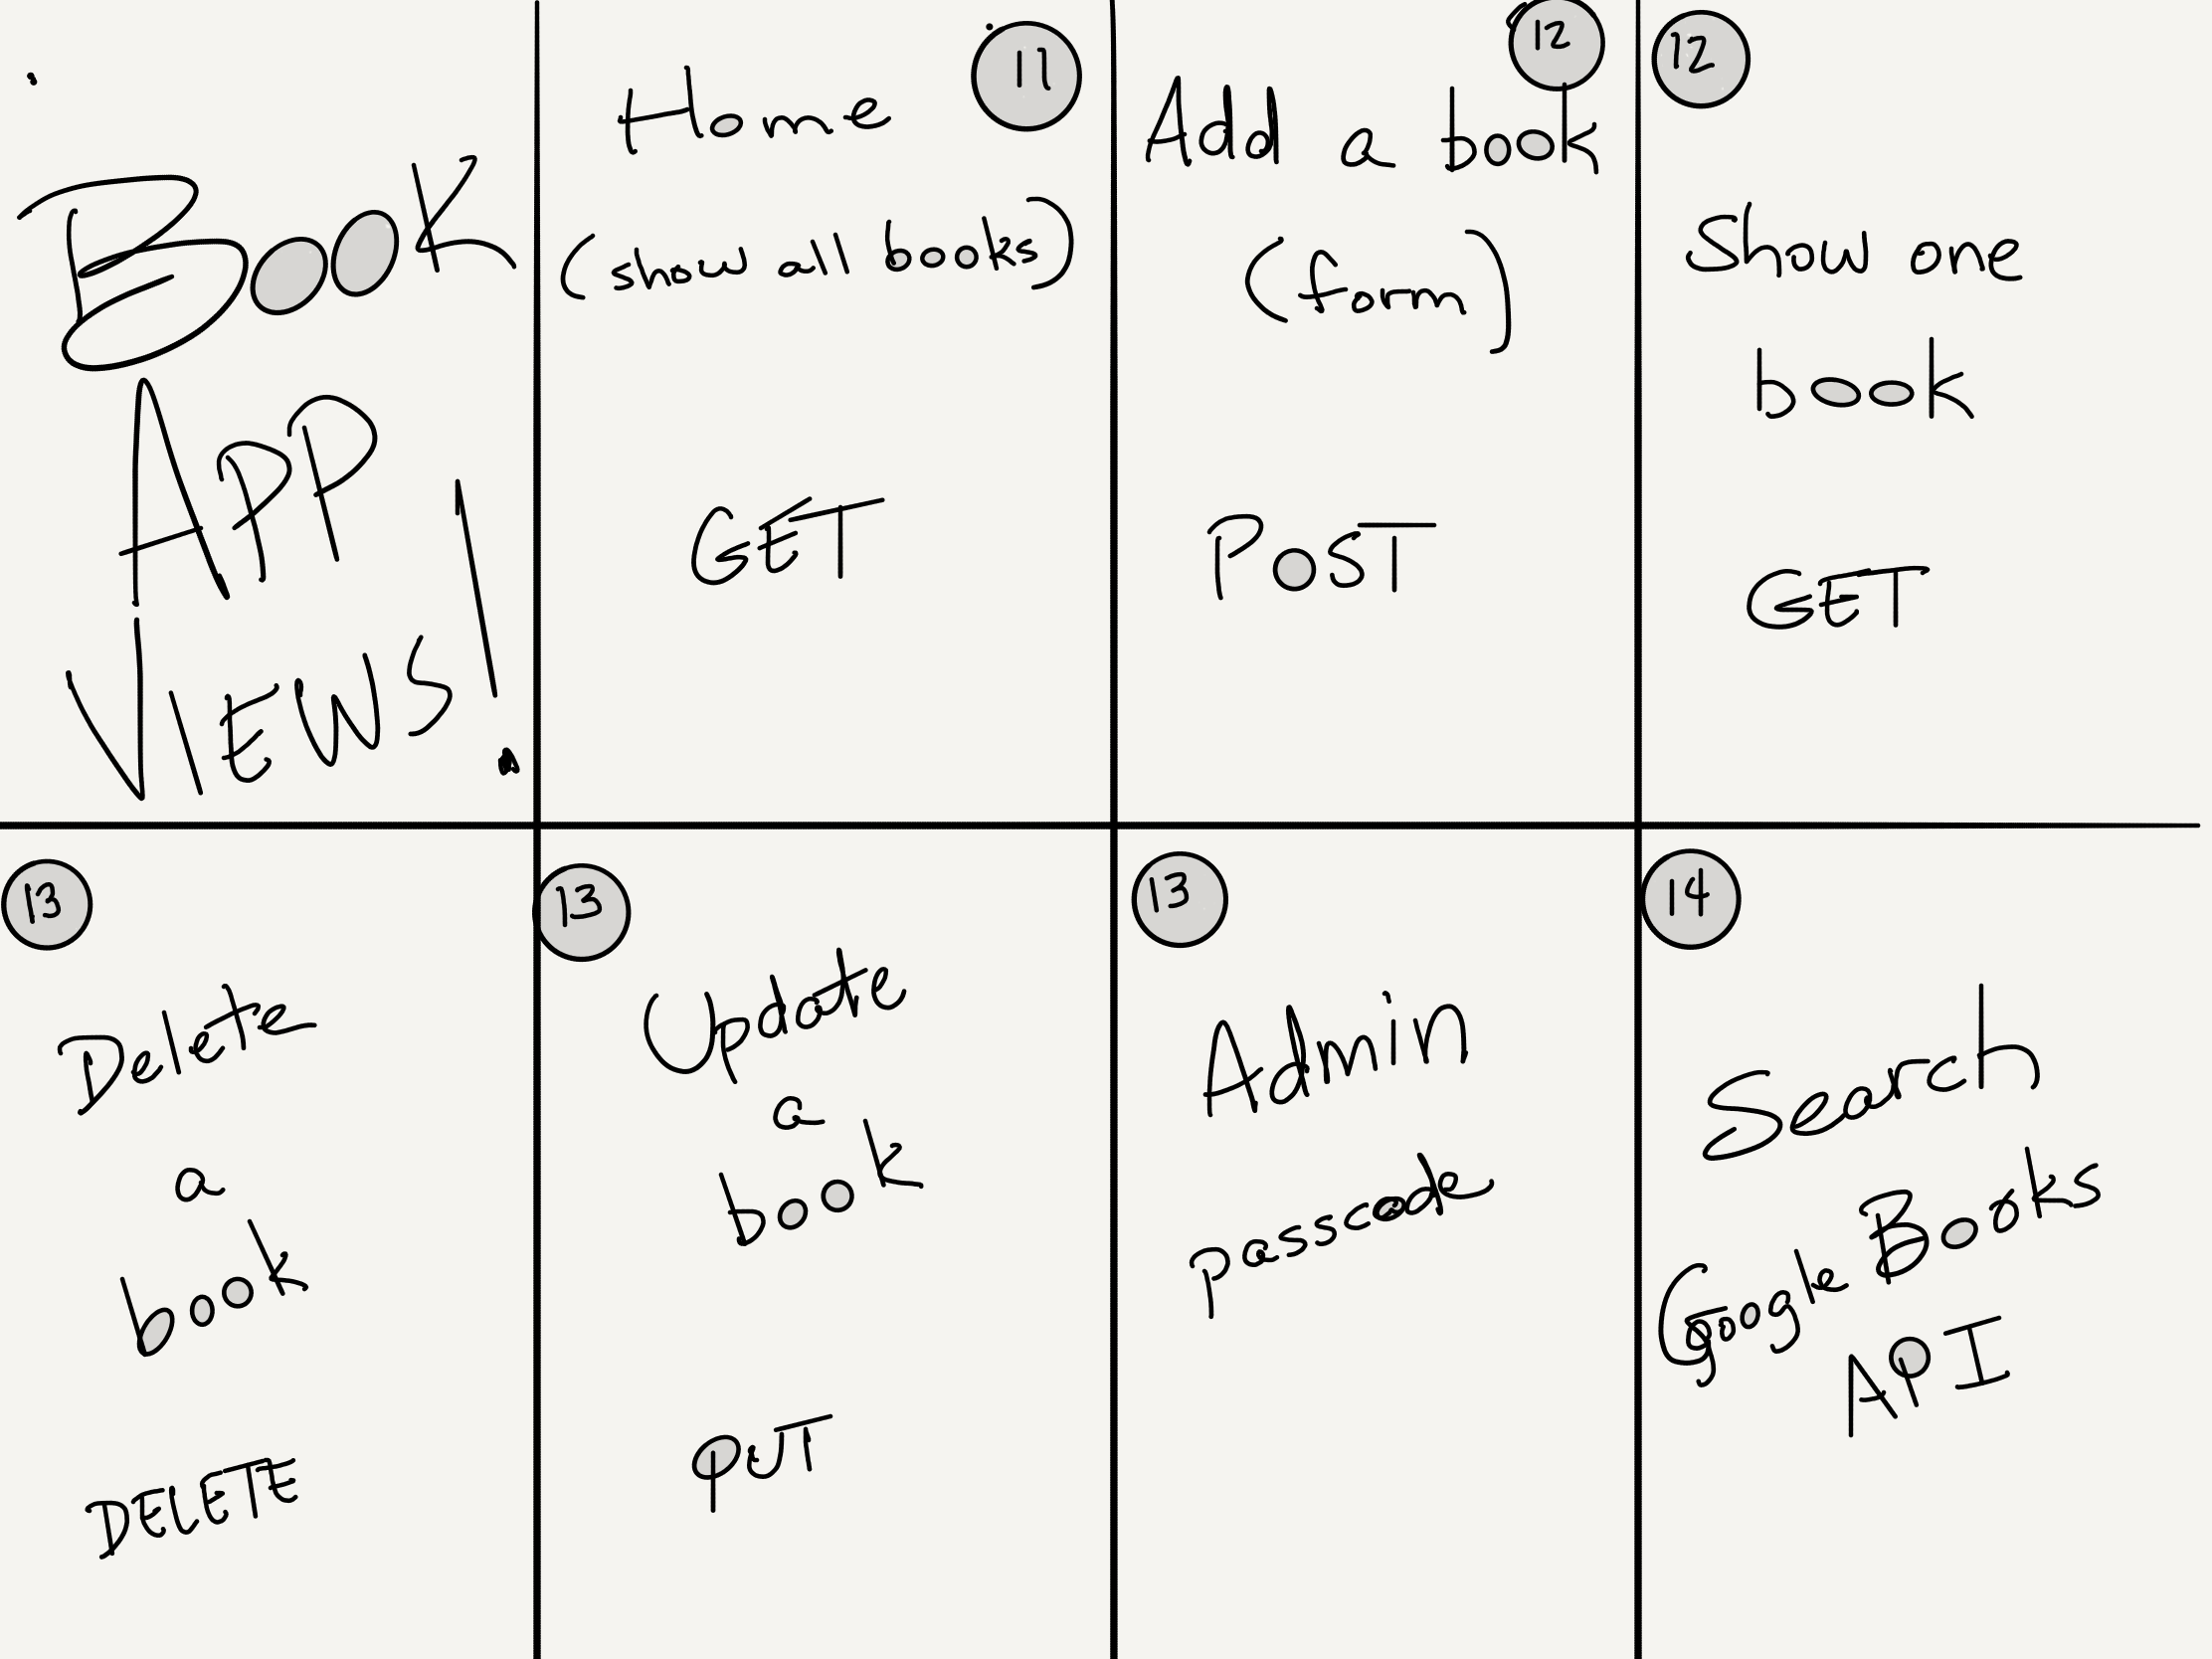 BOOK
APP
VIEWS!
11
Home
(show all books)
GET
12
Add a book
(form)
POST
12
Show one
book
GET
13
Delete
a
book
DELETE
13
Update
a
book
PUT
13
Admin
passcode
14
Search
Google Books
API